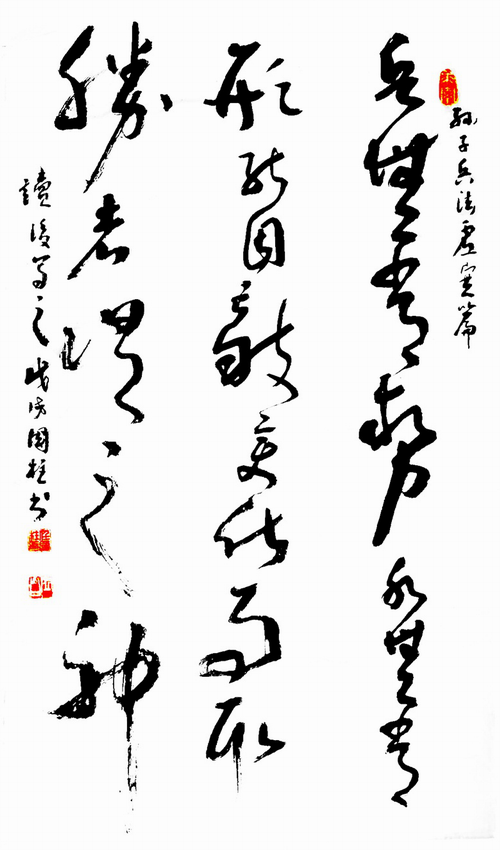 孫子兵法虛實篇
兵無常勢水無常
形能因敵變化而取
勝者謂之神
讀後寫之國柱書